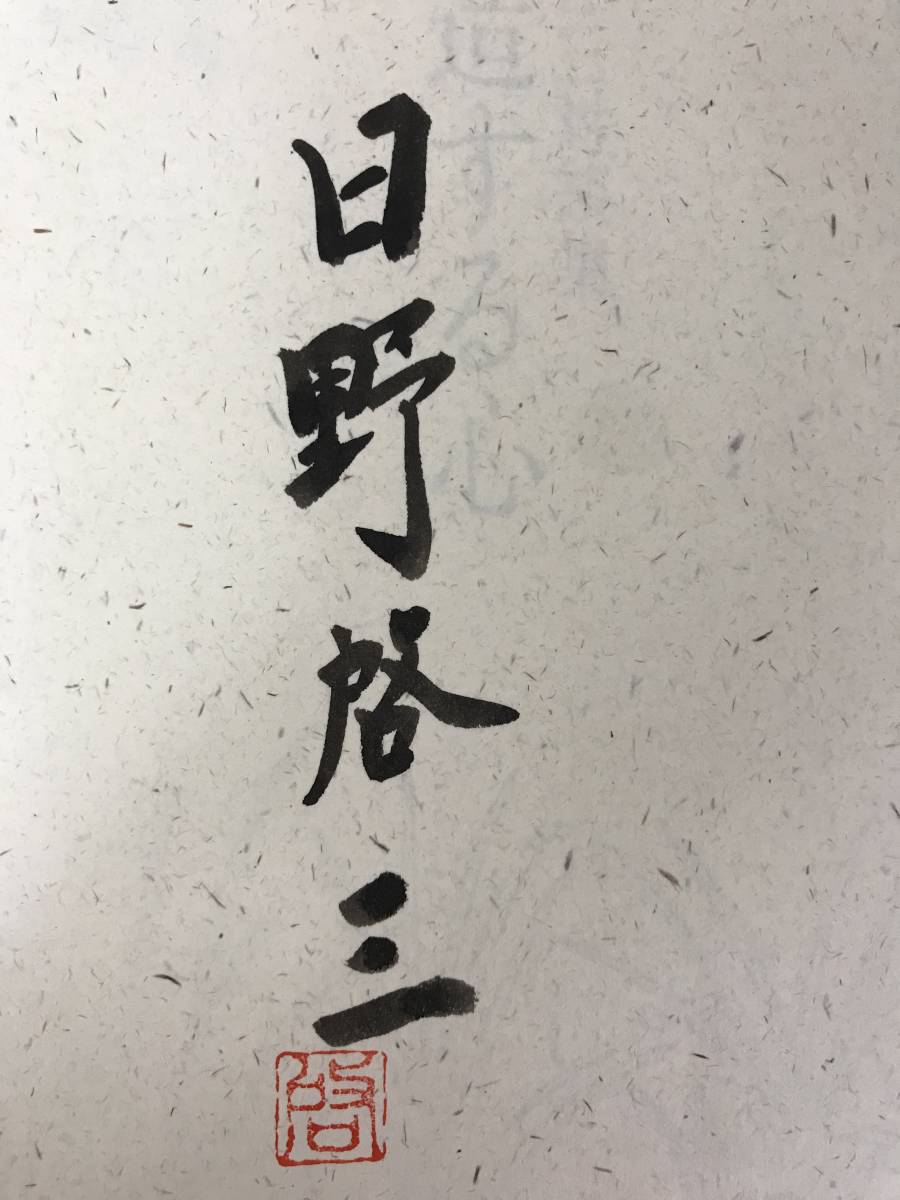 日野啓三
啓